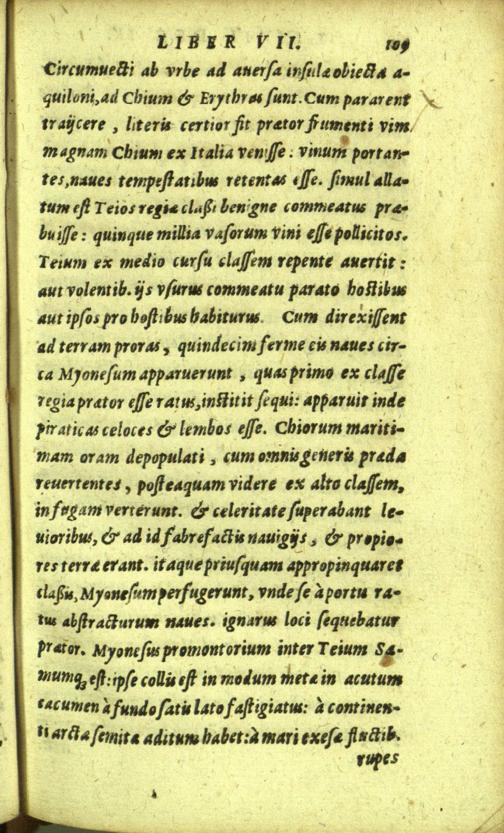 LIBER VII. 109
Circumuecti ab vrbe ad auersa insulæ obiecta a-
quiloni, ad Chium & Erythras sunt. Cum pararent
traijcere, literis certior fit prætor frumenti vim
magnam Chium ex Italia venisse: vinum portan-
tes, naues tempestatibus retentas esse. simul alla-
tum est Teios regiæ classi benigne commeatus præ-
buisse: quinque millia vasorum vini esse pollicitos.
Teium ex medio cursu classem repente auertit:
aut volentib. ijs vsurus commeatu parato hostibus
aut ipsos pro hostibus habiturus. Cum direxissent
ad terram proras, quindecim ferme eis naues cir-
ca Myonesum apparuerunt, quas primo ex classe
regia prætor esse ratus, institit sequi: apparuit inde
piraticas celoces & lembos esse. Chiorum mariti-
mam oram depopulati, cum omnis generis præda
reuertentes, posteaquam videre ex alto classem,
in fugam verterunt. & celeritate superabant le-
uioribus, & ad id fabrefactis nauigijs, & propio-
res terræ erant. itaque priusquam appropinquaret
classis, Myonesum perfugerunt, vnde se à portu ra-
tus abstracturum naues. ignarus loci sequebatur
prætor. Myonesus promontorium inter Teium Sa-
mumq́ est: ipse collis est in modum metæ in acutum
cacumen à fundo satis lato fastigiatus: à continen-
ti arcta semita aditum habet: à mari exesæ fluctib.
rupes